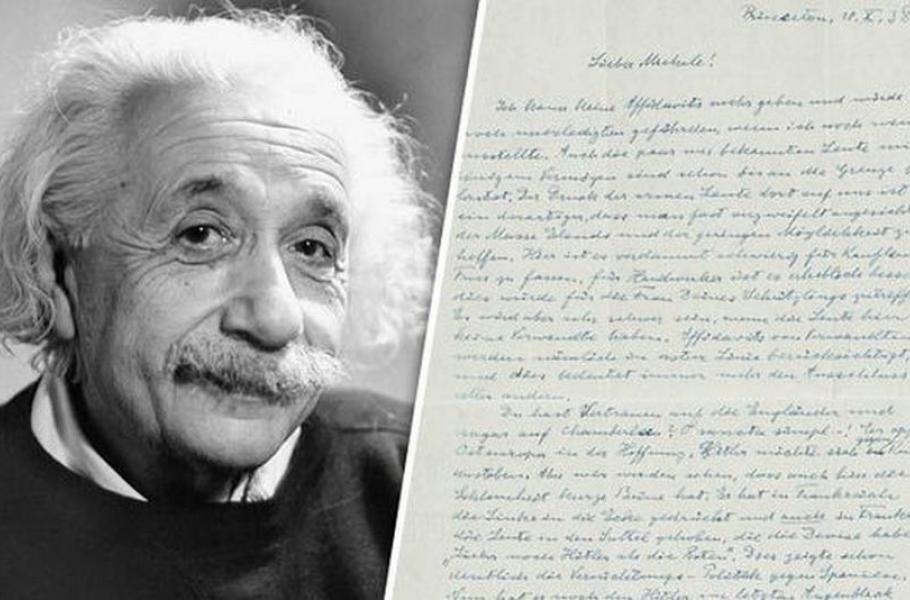 Princeton, 10. X. 38
Lieber Michele!
Ich kann keine Affidavits mehr geben und würde
noch unerledigten gefährden, wenn ich noch
ausstellte. Auch die paar mir bekannten Leute mi
Vermögen sind schon bis an die Grenze
Der Druck der armen Leute dort auf uns ist
ein derartiger, dass man fast verzweifelt angesicht
der Masse Elends und der geringen Möglichkeit z
helfen. Hier ist es verdammt schwierig für Kaufleu
Fuss zu fassen, für Handwerker ist es erheblich besse
dies würde für die Frau Deines Schützlings zutreff
Es wird aber sehr schwer sein, wenn die Leute hier
keine Verwandte haben. Affidavits von Verwandten
werden nämlich in erster Linie berücksichtigt,
und dies bedeutet immer mehr den Ausschluss
aller andern.
Du hast Vertrauen auf die Engländer und
sogar auf Chamberlain? O sancta simpl-! Er op
Osteuropa in der Hoffnung, Hitler möchte sich gegen Ru
austoben. Aber wir werden sehen, dass auch hier die
Schlauheit kurze Beine hat. Er hat in Frankreich
die Linke in die Ecke gedrückt und auch in Frank
die Leute in den Sattel gehoben, die die Devise habe
„Lieber noch Hitler als die Roten". Dies zeigte schon
deutlich die Vernichtungs-Politik gegen Spanien.
Nun hat er noch den Hitler im letzten Augenblick